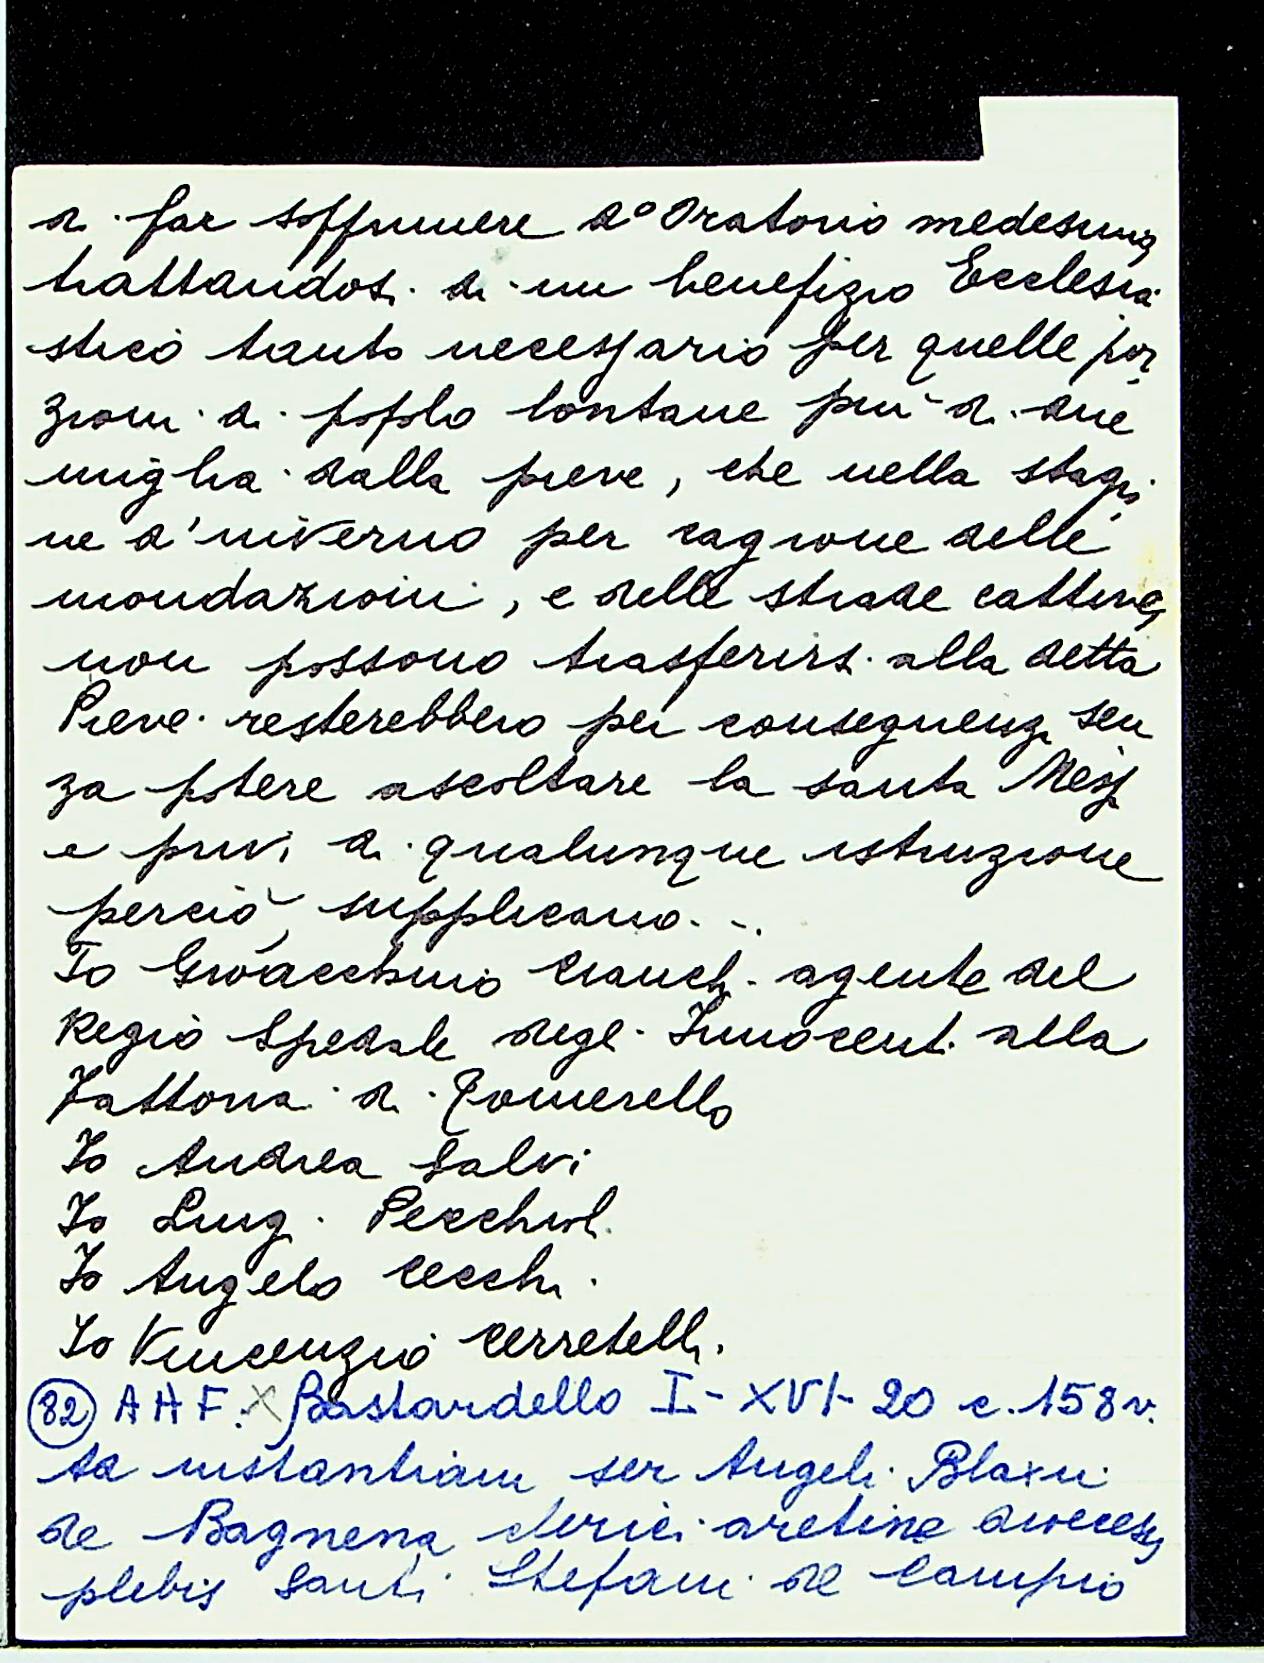 di far sopprimere do Oratorio medesimo
trattandosi di un benefizio Ecclesia
stico tanto necessario per quelle por
zioni di popolo lontane più di due
miglia dalla pieve, che nella stagio
ne d'inverno per cagione delle
inondazioni, e delle strade cattive
non possono trasferirsi alla detta
Pieve resterebbero per conseguenza sen
za potere ascoltare la santa Messa
e privi di qualunque istruzione
perciò supplicano...
Io Giovacchino agente del
Regio Spedale degl'Innocenti alla
Fattoria di
Io Andrea Salvi
Io Luigi Pecchioli
Io Angelo Cecchi
Io Vincenzio Cerretelli
82 A A F. X Bastardello I-XVI-20 c. 158 v.
Ad instantiam ser Angeli Blaxii
de Bagnena clerici aretine diocesis
plebis Santi Stefani de Campio